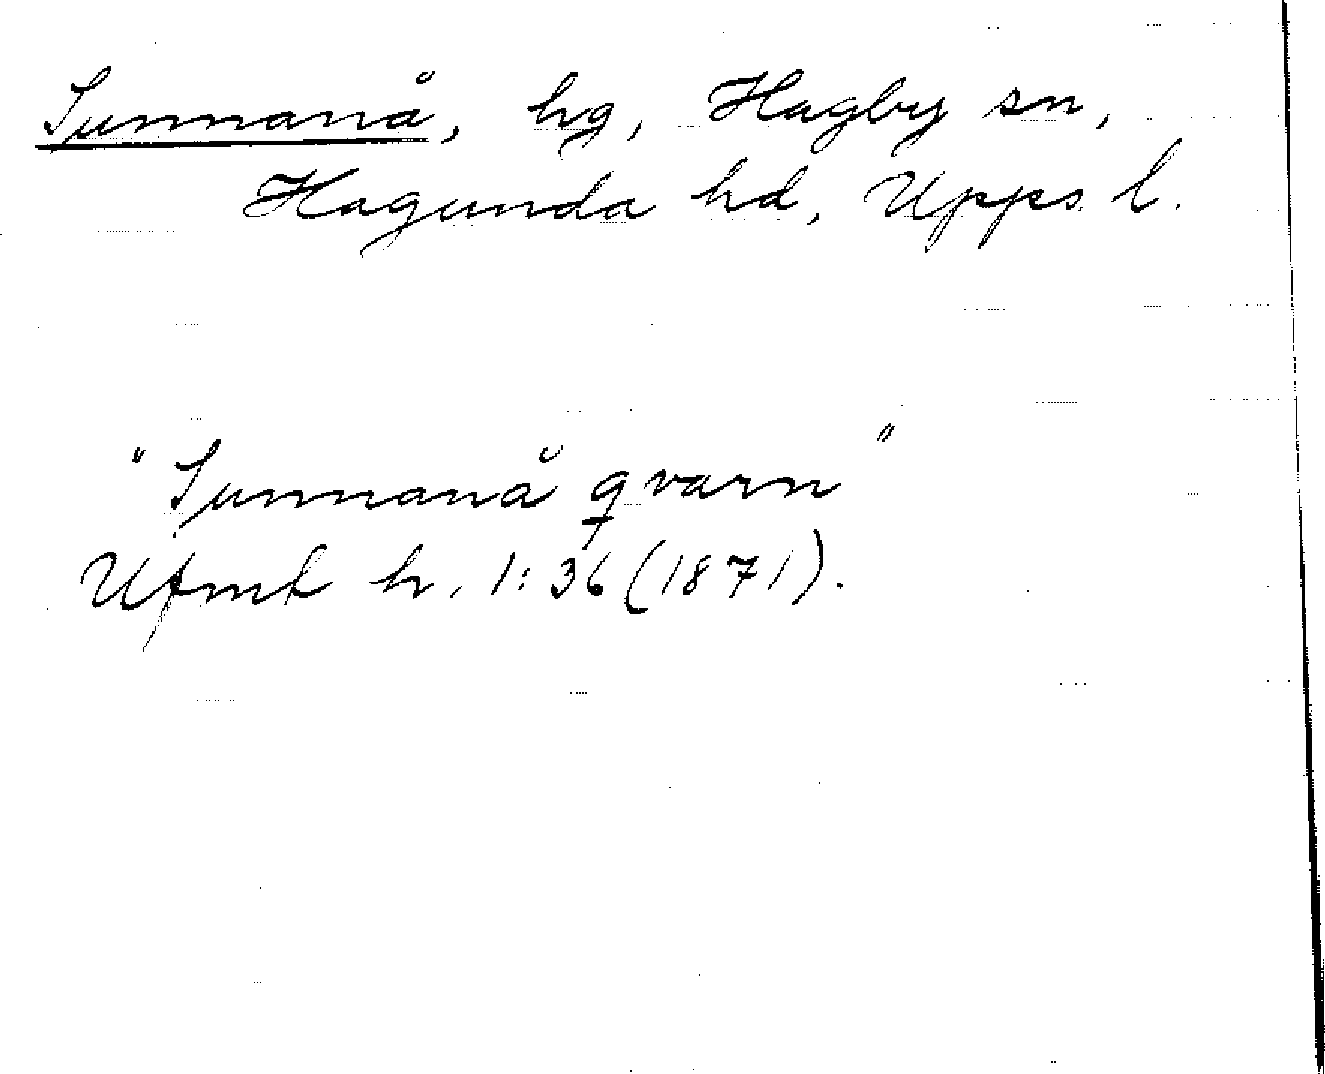 Sunnanå, hg, Hagby sn,
Hagunda hd, Upps. l.
"Sunnanå qvarn"
Ufmt h. 1:36 (1871).